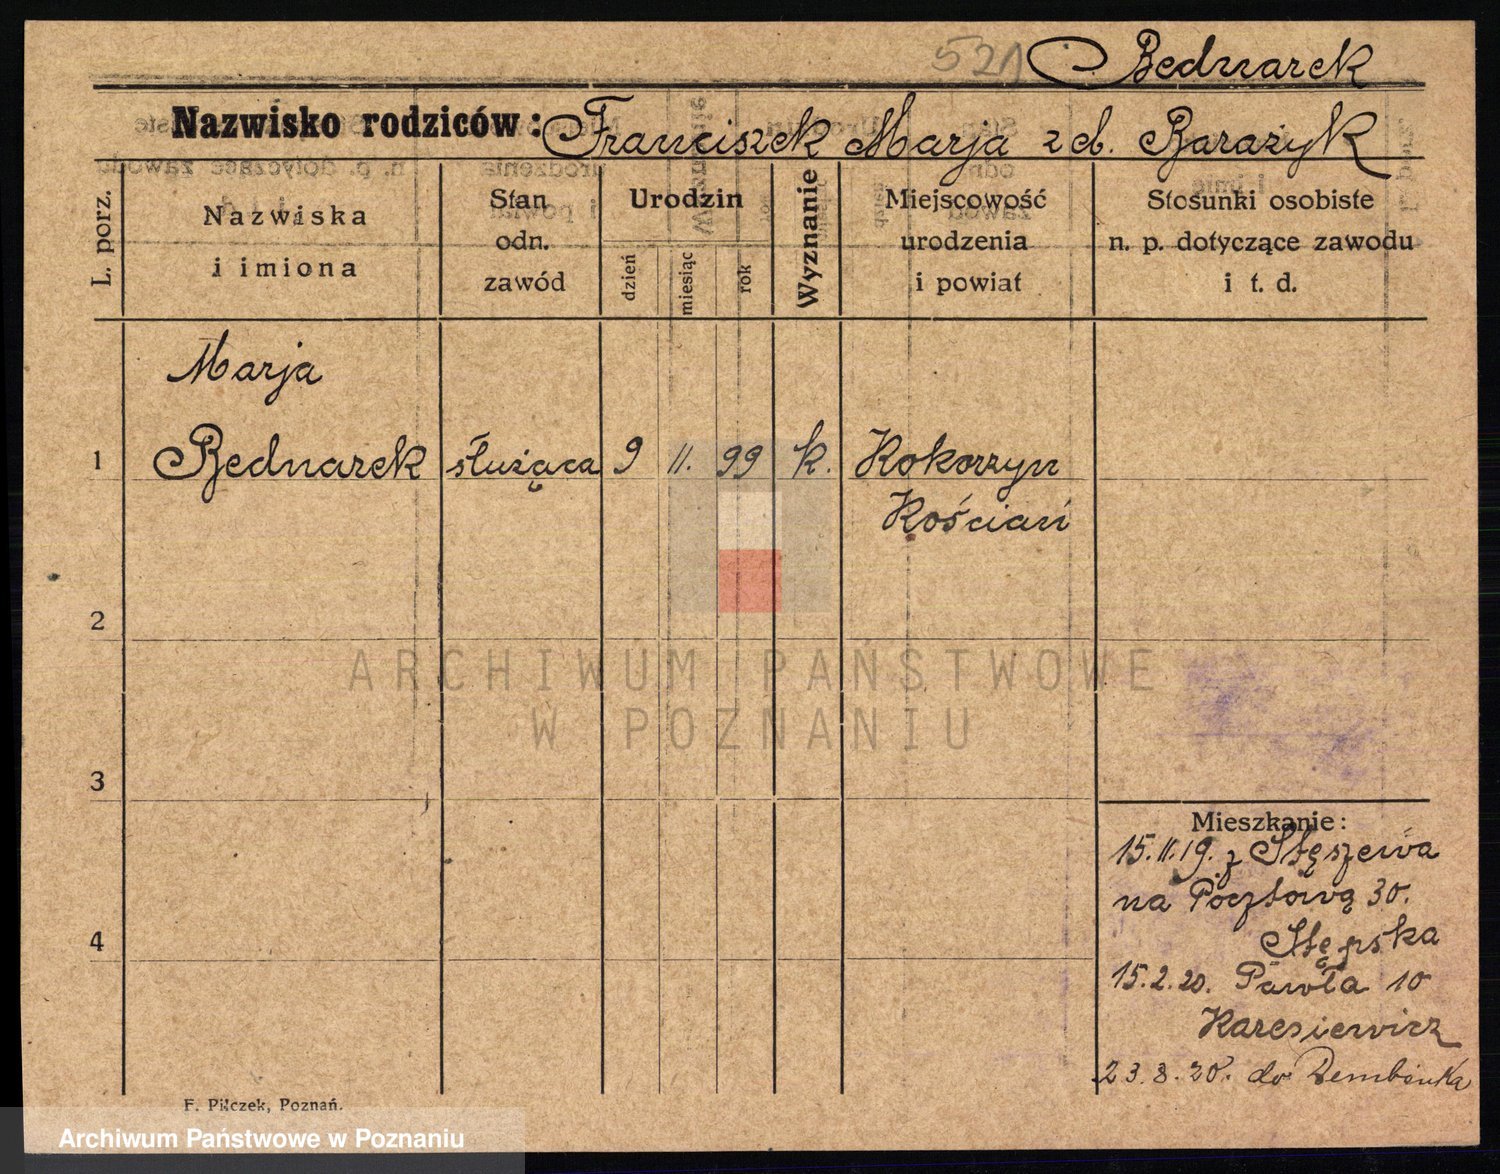 521 Bednarek
Nazwisko rodziców: Franciszek Marja z d. Barażyk
L. porz.
Nazwiska
i imiona
Stan
odn.
zawód
Urodzin
dzień
miesiąc
rok
Wyznanie
Miejscowość
urodzenia
i powiat
Stosunki osobiste
n. p. dotyczące zawodu
i t. d.
Marja
1 Bednarek służąca 9 11. 99 k. Kokorzyn
Kościan
2
3
4
ARCHIWUM PAŃSTWOWE
W POZNANIU
Mieszkanie:
15.11.19. z Stęszewa
na Pocztową 30.
15.2.20. Pawła 10
23.8.20. do
F. Pilczek, Poznań.
Archiwum Państwowe w Poznaniu